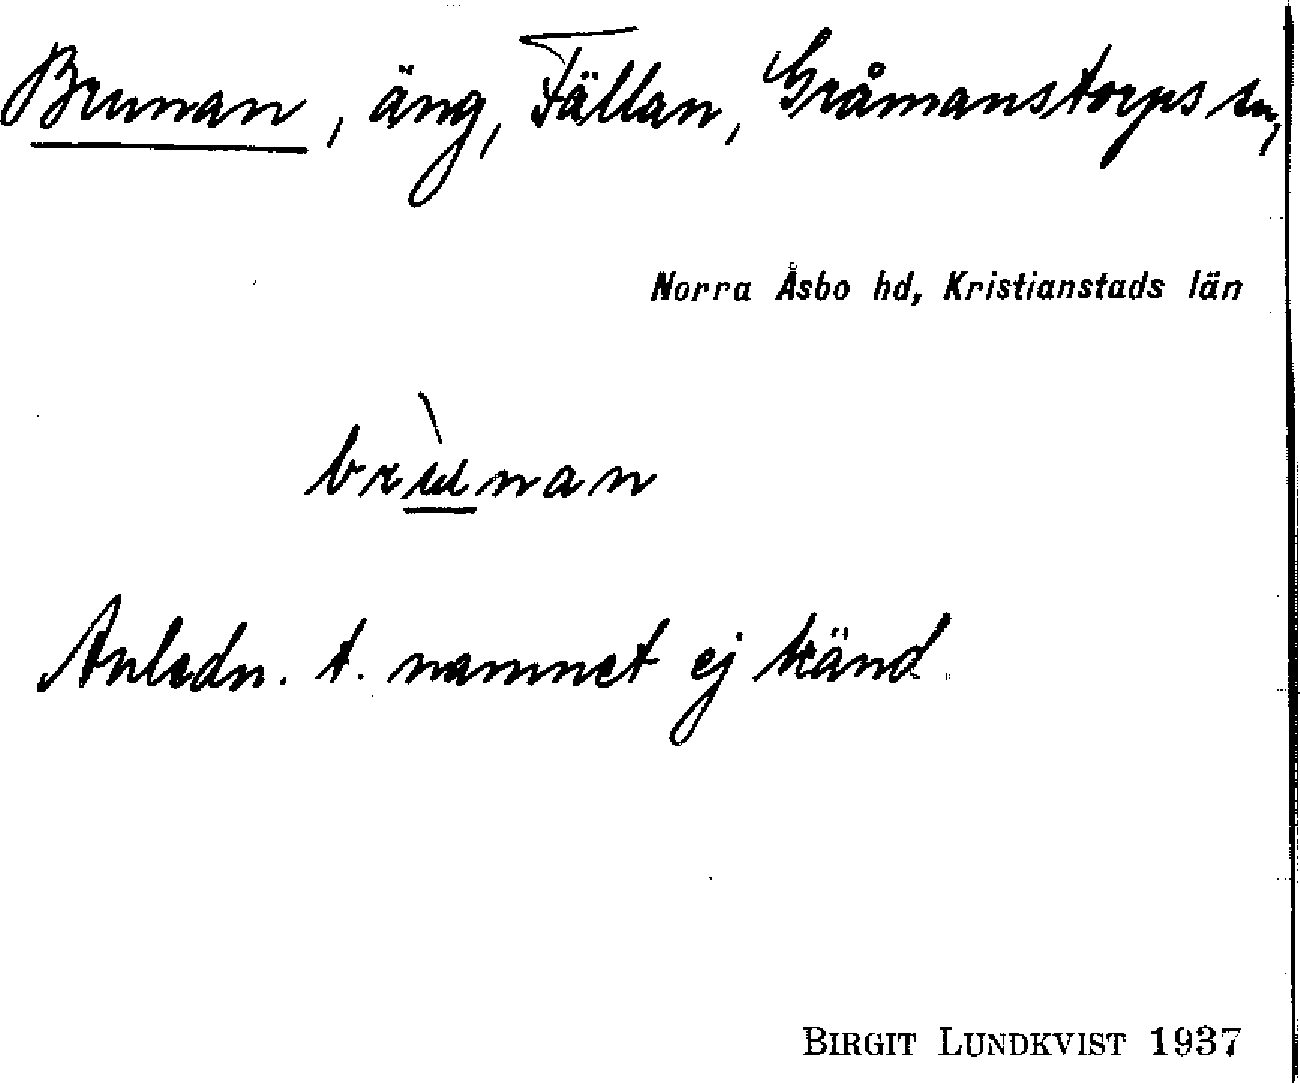 Brunan, äng, Fällan, Gråmanstorps sn,
Norra Åsbo hd, Kristianstads län
brùnan
Anledn. t. namnet ej känd.
BIRGIT LUNDKVIST 1937